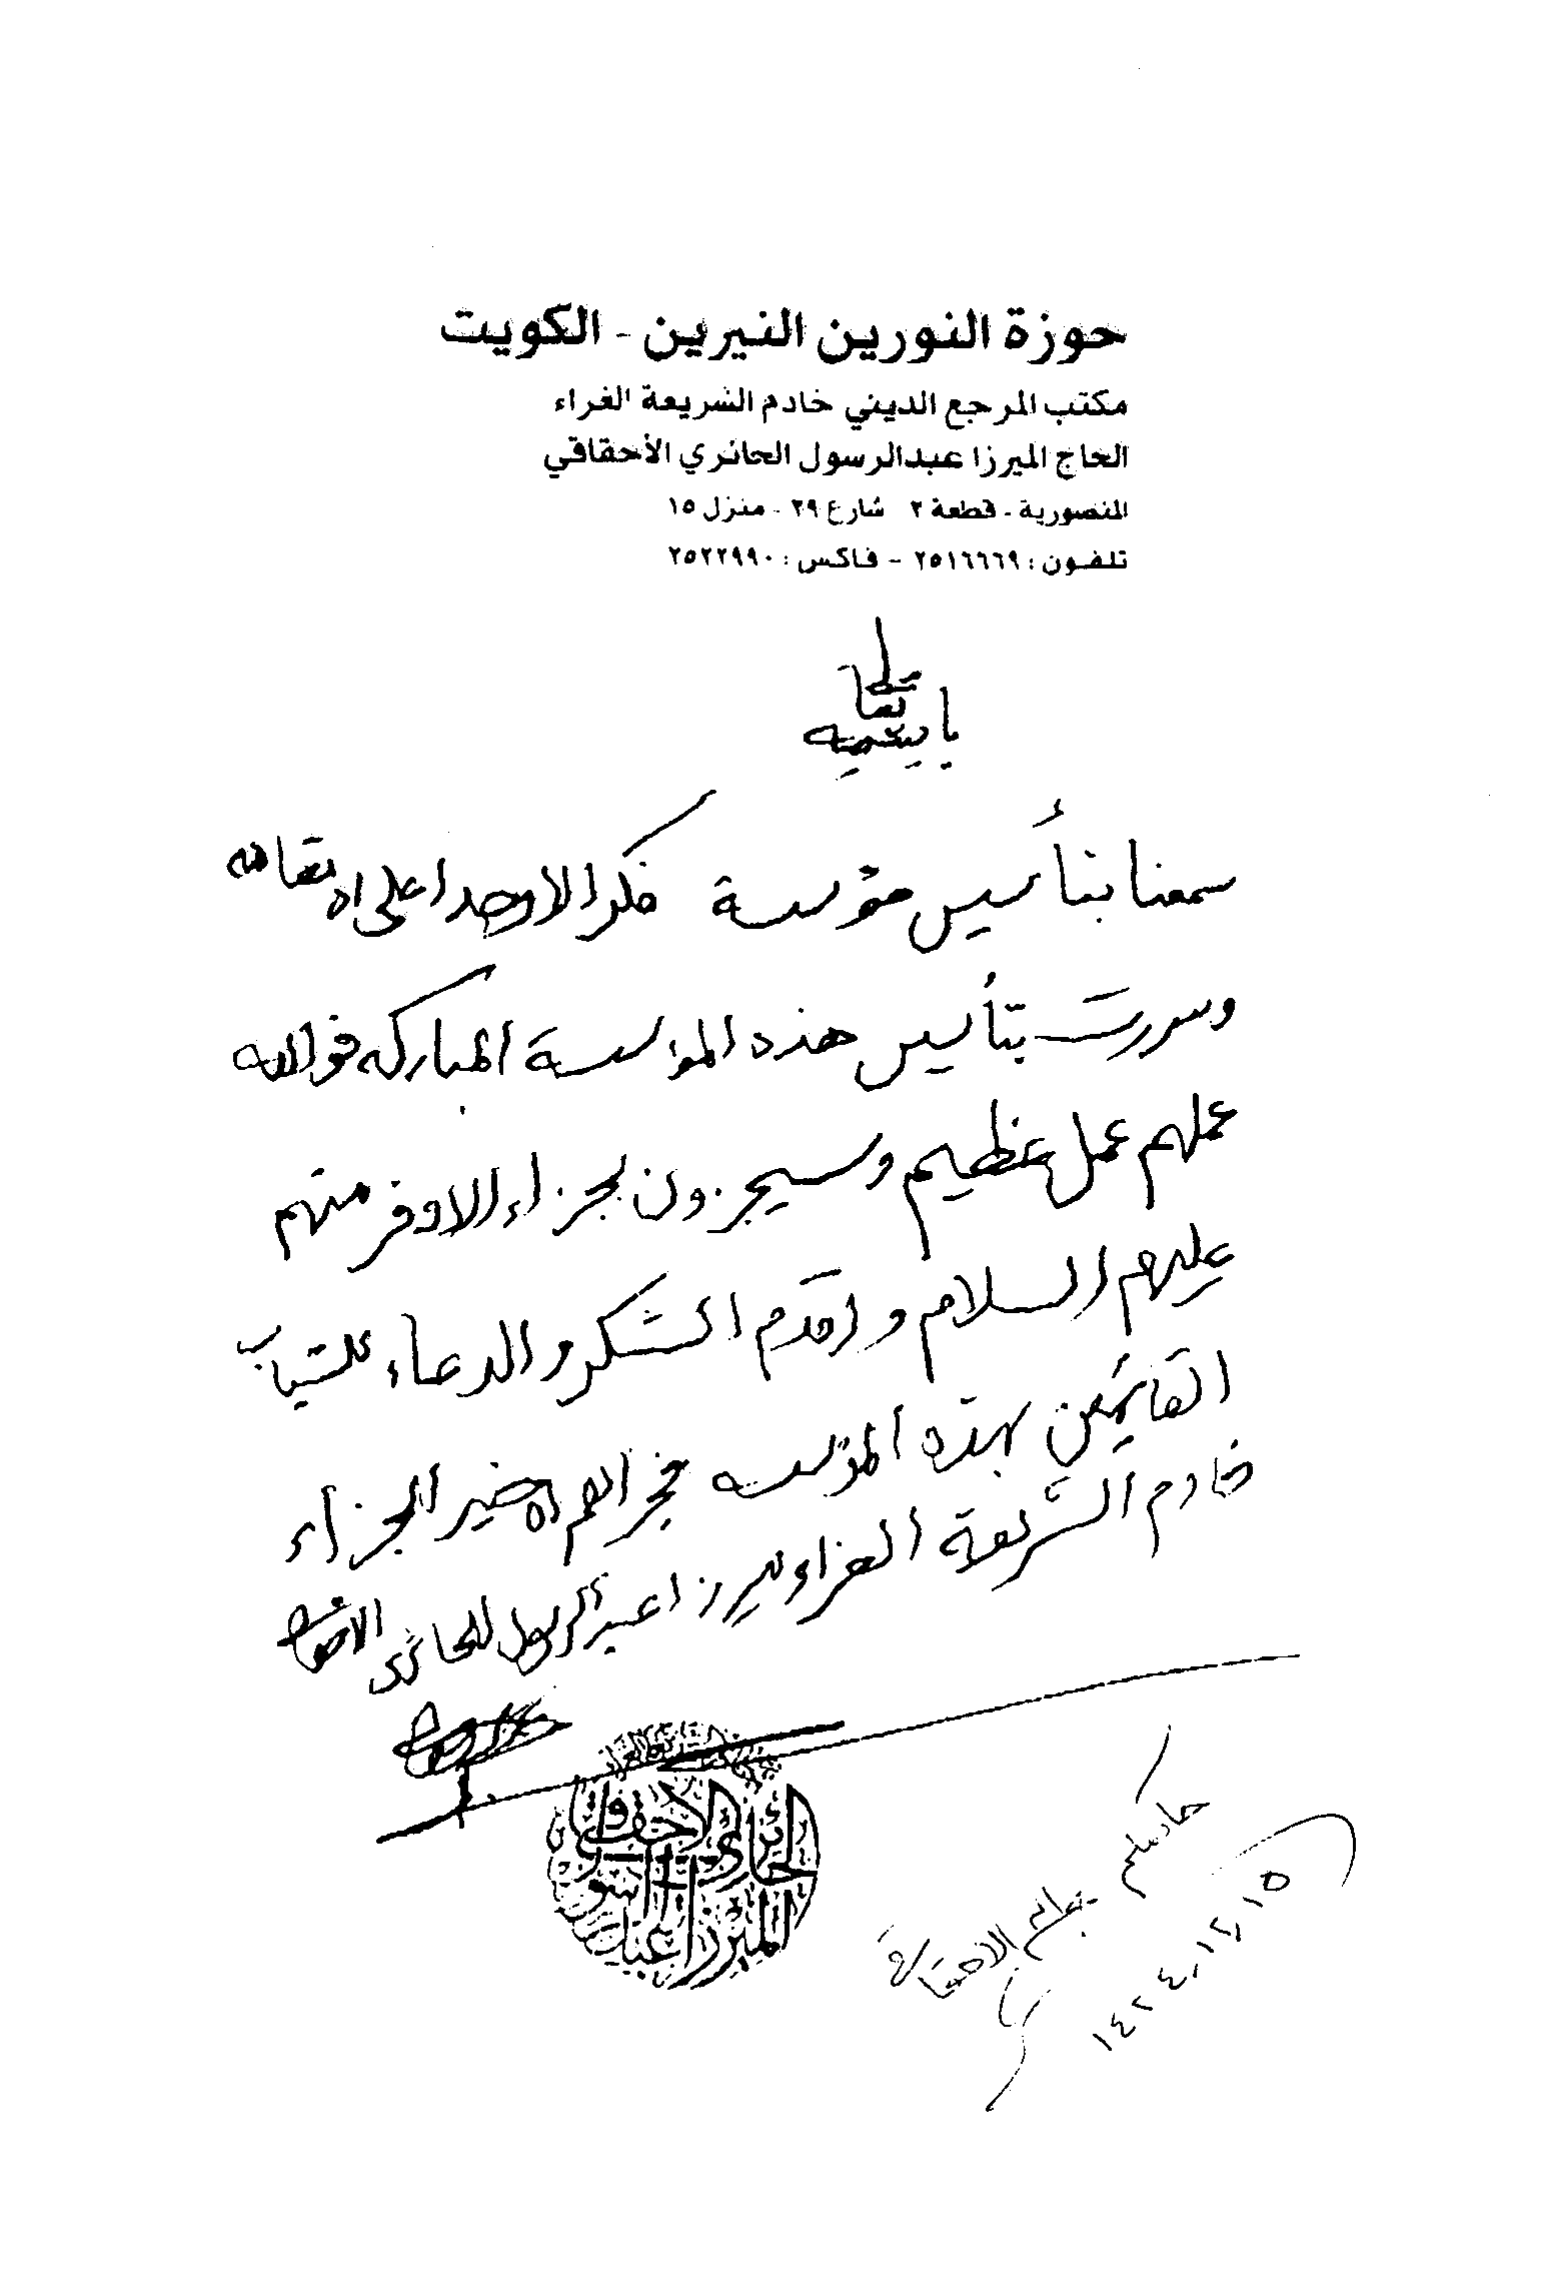 حوزة النورين النيرين - الكويت
مكتب المرجع الديني خادم الشريعة الغراء
الحاج الميرزا عبدالرسول الحائري الأحقاقي
المنصورية - قطعة ٢ شارع ٢٩ - منزل ١٥
تلفون : ٢٥١٦٦٦٩ - فاكس : ٢٥٢٢٩٩٠
باسمه تعالى
سمعنا بتأسيس مؤسسة فكر الاوحد اعلى الله مقامه
وسررت بتأسيس هذه المؤسسة المباركه فوالله
عملهم عمل عظيم وسيجزون بجزاء الاوفر منهم
عليهم السلام واقدم الشكر والدعاء للشباب
القائمين بهذه المؤسسه فجزاهم الله خير الجزاء
خادم الشريعة الغراء ميرزا عبدالرسول الحائري الاحقاقي
الحائري الاحقاقي
الميرزا عبدالرسول
خادمكم
الاحقاقي
١٤٢٤،١٢،١٥